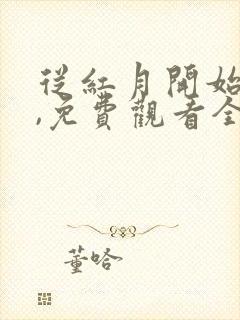 從紅月開始
,免費觀看全
董哈